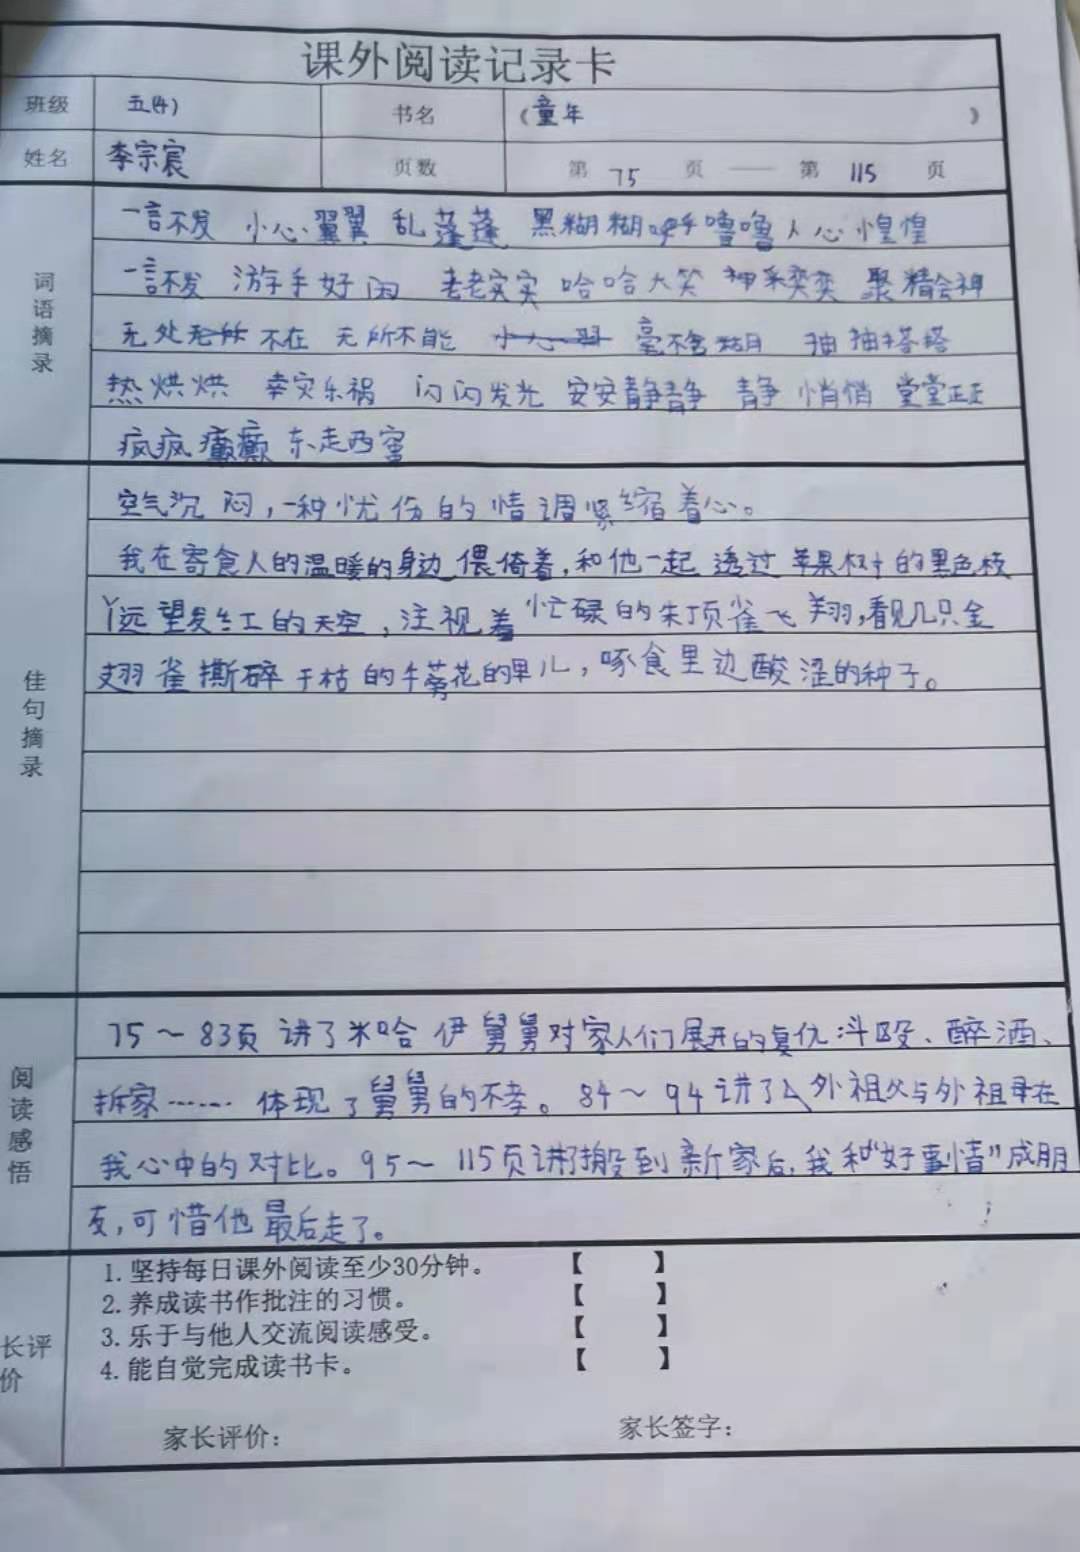 课外阅读记录卡
班级 五(4) 书名 《童年 》
姓名 李宗宸 页数 第 75 页 —— 第 115 页
词语摘录
一言不发 小心翼翼 乱蓬蓬 黑糊糊 呼噜噜 人心惶惶
一言不发 游手好闲 老老实实 哈哈大笑 神采奕奕 聚精会神
无处不在 无所不能 毫不含糊 抽抽搭搭
热烘烘 幸灾乐祸 闪闪发光 安安静静 静悄悄 堂堂正正
疯疯癫癫 东走西窜
佳句摘录
空气沉闷,一种忧伤的情调紧缩着心。
我在寄食人的温暖的身边偎倚着,和他一起透过苹果树的黑色枝
丫远望发红的天空,注视着忙碌的朱顶雀飞翔,看见几只金
翅雀撕碎干枯的牛蒡花的果儿,啄食里边酸涩的种子。
阅读感悟
75~83页讲了米哈伊舅舅对家人们展开的复仇:斗殴、醉酒、
拆家…… 体现了舅舅的不孝。84~94讲了外祖父与外祖母在
我心中的对比。95~115页讲了搬到新家后,我和“好事情”成朋
友,可惜他最后走了。
长评价
1.坚持每日课外阅读至少30分钟。 【 】
2.养成读书作批注的习惯。 【 】
3.乐于与他人交流阅读感受。 【 】
4.能自觉完成读书卡。 【 】
家长评价: 家长签字: